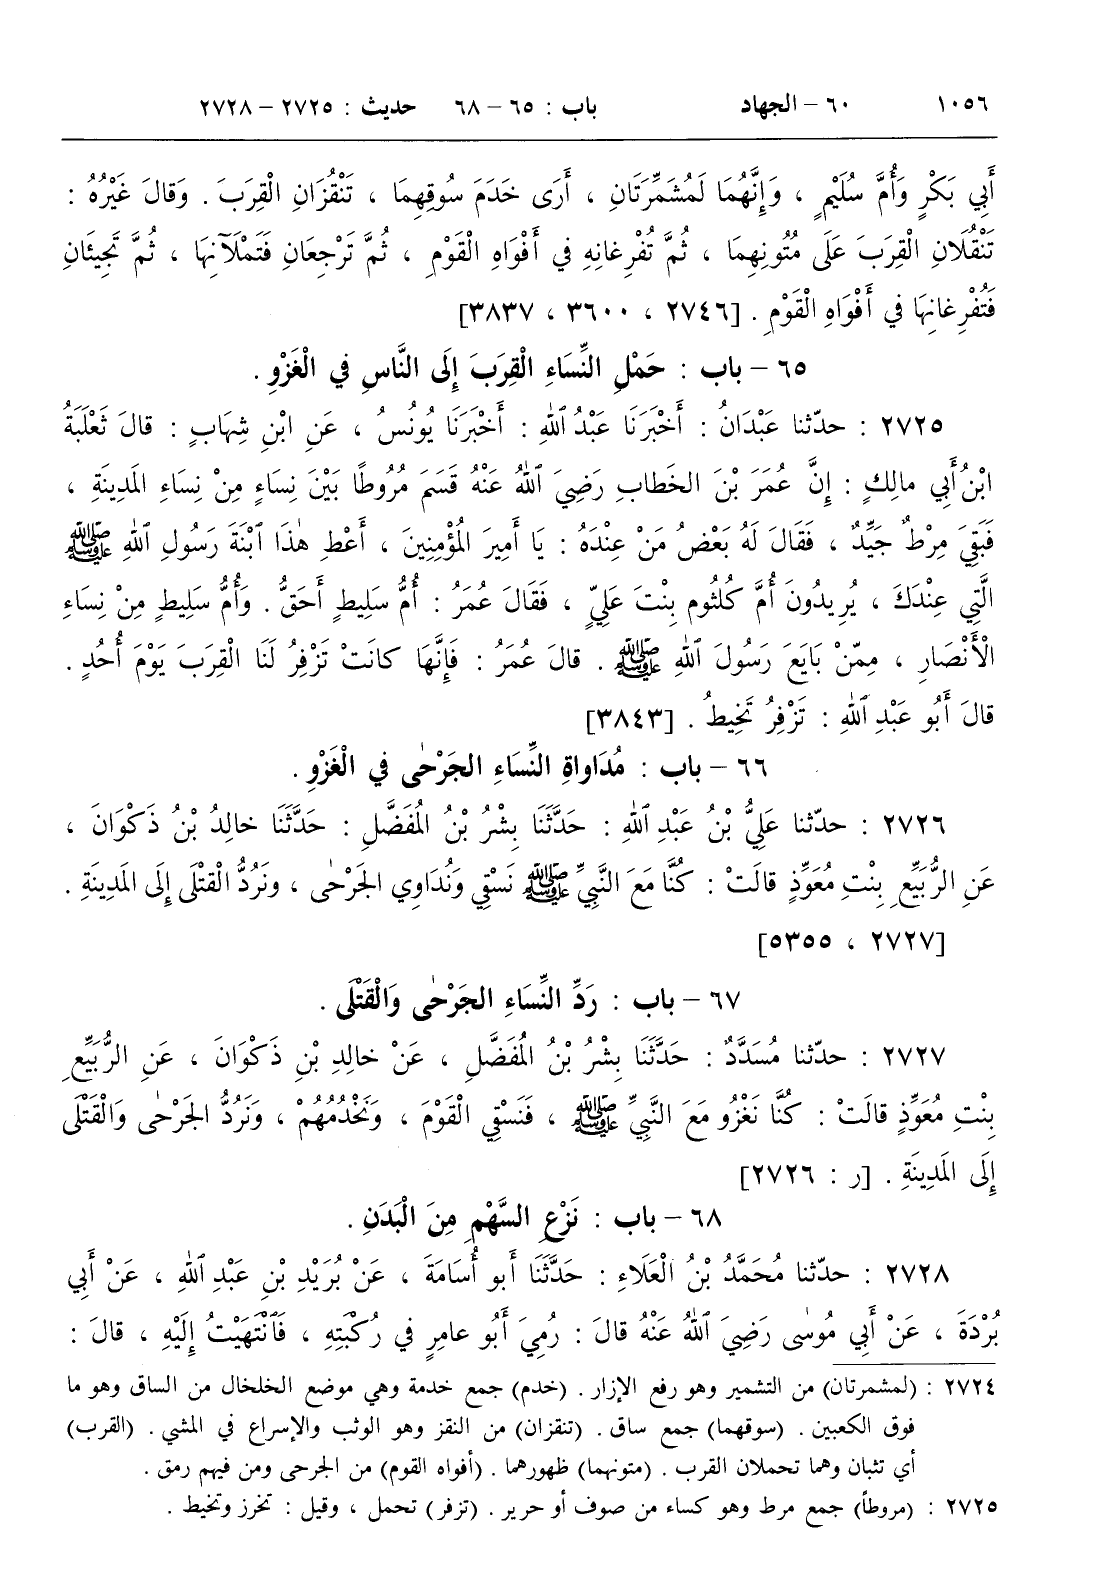 ١٠٥٦ ٦٠ – الجهاد باب : ٦٥ – ٦٨ حديث : ٢٧٢٥ – ٢٧٢٨
أَبِي بَكْرٍ وَأُمَّ سُلَيْمٍ ، وَإِنَّهُمَا لَمُشَمِّرَتَانِ ، أَرَى خَدَمَ سُوقِهِمَا ، تَنْقُزَانِ الْقِرَبَ . وَقالَ غَيْرُهُ :
تَنْقُلَانِ الْقِرَبَ عَلَى مُتُونِهِمَا ، ثُمَّ تُفْرِغانِهِ في أَفْوَاهِ الْقَوْمِ ، ثُمَّ تَرْجِعَانِ فَتَمْلَآنِهَا ، ثُمَّ تَجِيئَانِ
فَتُفْرِغانِهَا في أَفْوَاهِ الْقَوْمِ . [٢٧٤٦ ، ٣٦٠٠ ، ٣٨٣٧]
٦٥ – باب : حَمْلِ النِّسَاءِ الْقِرَبَ إِلَى النَّاسِ في الْغَزْوِ .
٢٧٢٥ : حدّثنا عَبْدَانُ : أَخْبَرَنَا عَبْدُ ٱللهِ : أَخْبَرَنَا يُونُسُ ، عَنِ ابْنِ شِهَابٍ : قالَ ثَعْلَبَةُ
ابْنُ أَبِي مالِكٍ : إِنَّ عُمَرَ بْنَ الخَطابِ رَضِيَ ٱللهُ عَنْهُ قَسَمَ مُرُوطًا بَيْنَ نِسَاءٍ مِنْ نِسَاءِ المَدِينَةِ ،
فَبَقِيَ مِرْطٌ جَيِّدٌ ، فَقَالَ لَهُ بَعْضُ مَنْ عِنْدَهُ : يَا أَمِيرَ المُؤْمِنِينَ ، أَعْطِ هٰذَا ٱبْنَةَ رَسُولِ ٱللهِ ﷺ
الَّتِي عِنْدَكَ ، يُرِيدُونَ أُمَّ كُلْثُوم بِنْتَ عَلِيٍّ ، فَقَالَ عُمَرُ : أُمُّ سَلِيطٍ أَحَقُّ . وَأُمُّ سَلِيطٍ مِنْ نِسَاءِ
الْأَنْصَارِ ، مِمَّنْ بَايَعَ رَسُولَ ٱللهِ ﷺ . قالَ عُمَرُ : فَإِنَّهَا كانَتْ تَزْفِرُ لَنَا الْقِرَبَ يَوْمَ أُحُدٍ .
قالَ أَبُو عَبْدِ ٱللهِ : تَزْفِرُ تَخِيطُ . [٣٨٤٣]
٦٦ – باب : مُدَاوَاةِ النِّسَاءِ الجَرْحٰى في الْغَزْوِ .
٢٧٢٦ : حدّثنا عَلِيُّ بْنُ عَبْدِ ٱللهِ : حَدَّثَنَا بِشْرُ بْنُ المُفَضَّلِ : حَدَّثَنَا خالِدُ بْنُ ذَكْوَانَ ،
عَنِ الرُّبَيِّعِ بِنْتِ مُعَوِّذٍ قالَتْ : كُنَّا مَعَ النَّبِيِّ ﷺ نَسْقِي وَنُدَاوِي الجَرْحٰى ، وَنَرُدُّ الْقَتْلَى إِلَى المَدِينَةِ .
[٢٧٢٧ ، ٥٣٥٥]
٦٧ – باب : رَدِّ النِّسَاءِ الجَرْحٰى وَالْقَتْلَى .
٢٧٢٧ : حدّثنا مُسَدَّدٌ : حَدَّثَنَا بِشْرُ بْنُ المُفَضَّلِ ، عَنْ خالِدِ بْنِ ذَكْوَانَ ، عَنِ الرُّبَيِّعِ
بِنْتِ مُعَوِّذٍ قالَتْ : كُنَّا نَغْزُو مَعَ النَّبِيِّ ﷺ ، فَنَسْقِي الْقَوْمَ ، وَنَخْدُمُهُمْ ، وَنَرُدُّ الجَرْحٰى وَالْقَتْلَى
إِلَى المَدِينَةِ . [ر : ٢٧٢٦]
٦٨ – باب : نَزْعِ السَّهْمِ مِنَ الْبَدَنِ .
٢٧٢٨ : حدّثنا مُحَمَّدُ بْنُ الْعَلَاءِ : حَدَّثَنَا أَبو أُسَامَةَ ، عَنْ بُرَيْدِ بْنِ عَبْدِ ٱللهِ ، عَنْ أَبِي
بُرْدَةَ ، عَنْ أَبِي مُوسٰى رَضِيَ ٱللهُ عَنْهُ قالَ : رُمِيَ أَبُو عامِرٍ في رُكْبَتِهِ ، فَٱنْتَهَيْتُ إِلَيْهِ ، قالَ :
٢٧٢٤ : (لمشمرتان) من التشمير وهو رفع الإزار . (خدم) جمع خدمة وهي موضع الخلخال من الساق وهو ما
فوق الكعبين . (سوقهما) جمع ساق . (تنقزان) من النقز وهو الوثب والإسراع في المشي . (القرب)
أي تثبان وهما تحملان القرب . (متونهما) ظهورهما . (أفواه القوم) من الجرحى ومن فيهم رمق .
٢٧٢٥ : (مروطاً) جمع مرط وهو كساء من صوف أو حرير . (تزفر) تحمل ، وقيل : تخرز وتخيط .